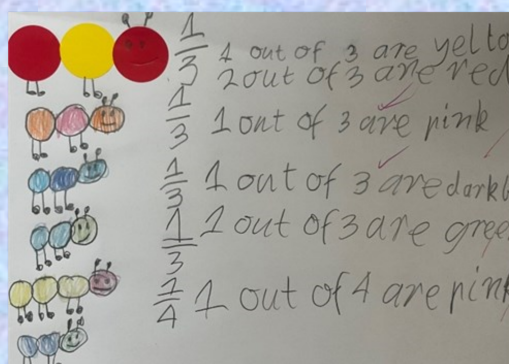 1/3 1 out of 3 are yello
2 out of 3 are red
1/3 1 out of 3 are pink
1/3 1 out of 3 are dark
1/3 1 out of 3 are gree
1/4 1 out of 4 are pink